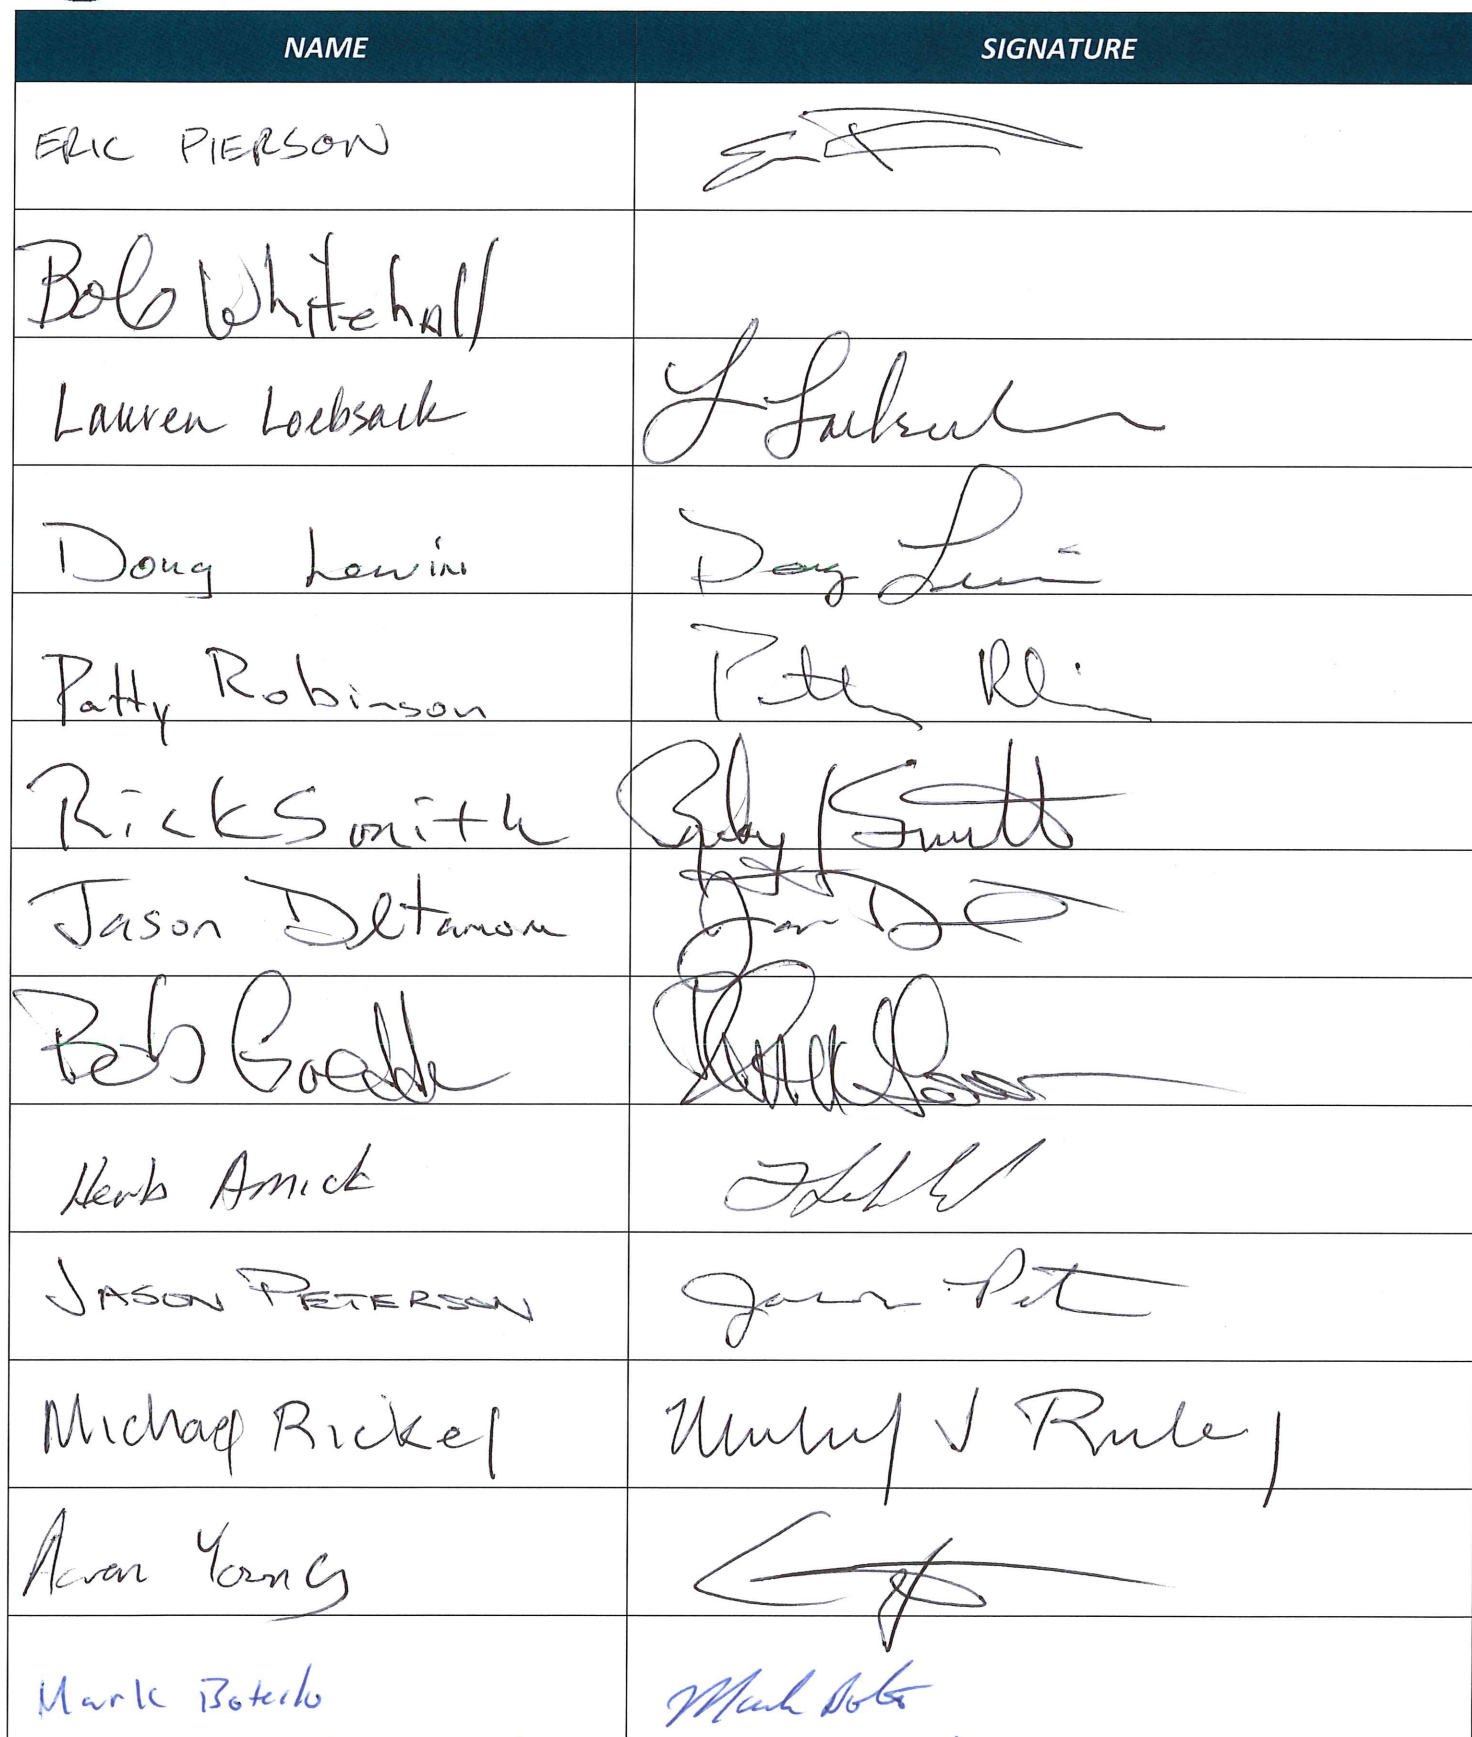 NAME SIGNATURE
ERIC PIERSON
Bob Whitehall
Lauren Loebsack L Loebsack
Doug Lewin Doug Lewin
Patty Robinson Patty
Rick Smith Smith
Jason Detamore
Bob Goedde
Herb Amick
JASON PETERSON Jason Pet
Michael Rickey Michael J Rickey
Aaron Young
Mark Botello Mark